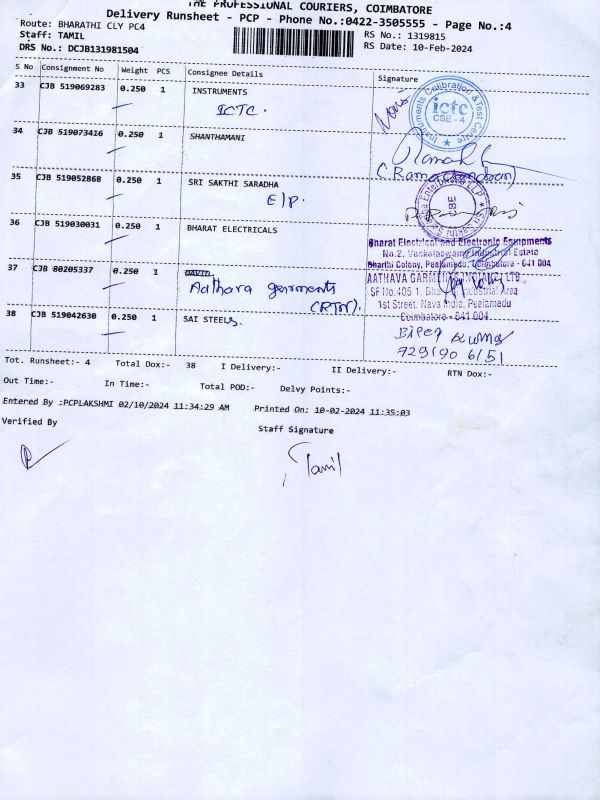 THE PROFESSIONAL COURIERS, COIMBATORE
Delivery Runsheet - PCP - Phone No.:0422-3505555 - Page No.:4
Route: BHARATHI CLY PC4
RS No.: 1319815
Staff: TAMIL
RS Date: 10-Feb-2024
DRS No.: DCJB131981504
S No Consignment No Weight PCS Consignee Details Signature
33 CJB 519069283 0.250 1 INSTRUMENTS
ICTC.
Instruments Calibration & Test Centre
ictc
CBE - 4
34 CJB 519073416 0.250 1 SHANTHAMANI
(Ramachandran)
35 CJB 519052868 0.250 1 SRI SAKTHI SARADHA
E/P.
CBE
36 CJB 519030031 0.250 1 BHARAT ELECTRICALS
Bharat Electrical and Electronic Equipments
No.2, Venkataswamy Industrial Estate
Bharthi Colony, Peelamedu, Coimbatore - 641 004
37 CJB 80205337 0.250 1
Aathava garments
(RTN).
AATHAVA GARMENTS LTD
SF No.405 1, Industrial Area
1st Street, Nava India, Peelamedu
Coimbatore - 641 004
38 CJB 519042630 0.250 1 SAI STEELS
Bipen Kumar
729190 6151
Tot. Runsheet:- 4 Total Dox:- 38 I Delivery:- II Delivery:- RTN Dox:-
Out Time:- In Time:- Total POD:- Delvy Points:-
Entered By :PCPLAKSHMI 02/10/2024 11:34:29 AM Printed On: 10-02-2024 11:35:03
Verified By
Staff Signature
Tamil